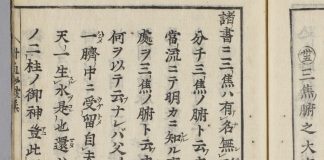 ㊂三焦腑之大
諸書ニ三焦ハ有名無
分チ三焦ノ腑ト云ヿ
當流ニテ明カニ知ル
處ヲ三焦ノ腑ト云
何ヲ以テ云ナレバ父
一臍中ニ受留自
天一生水是也還
ノ二柱ノ御神登此